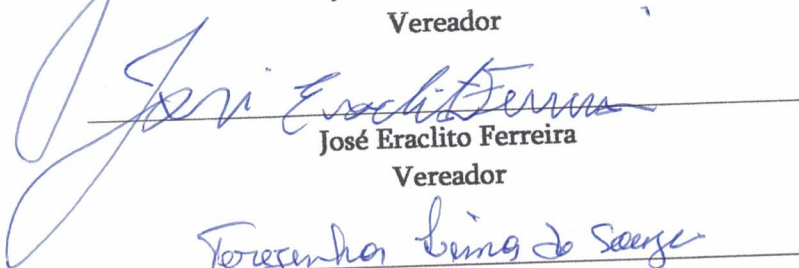 Vereador
José Eraclito Ferreira
José Eraclito Ferreira
Vereador
Teresinha Lima de Souza